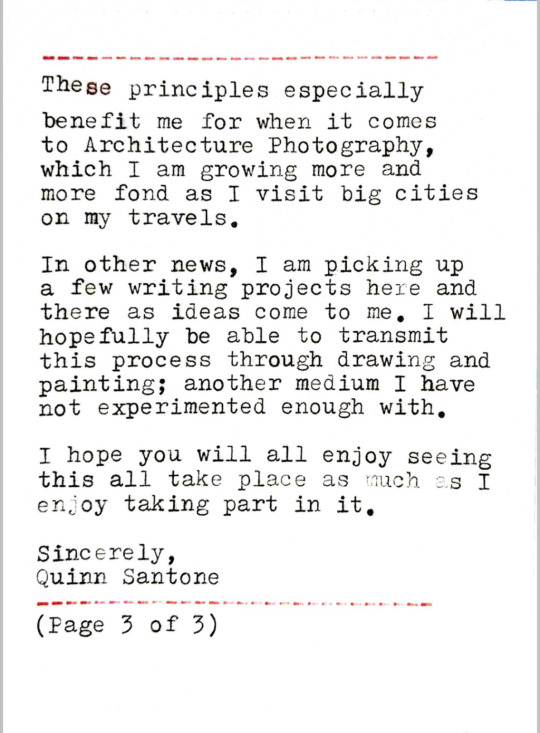 These principles especially
benefit me for when it comes
to Architecture Photography,
which I am growing more and
more fond as I visit big cities
on my travels.
In other news, I am picking up
a few writing projects here and
there as ideas come to me. I will
hopefully be able to transmit
this process through drawing and
painting; another medium I have
not experimented enough with.
I hope you will all enjoy seeing
this all take place as much as I
enjoy taking part in it.
Sincerely,
Quinn Santone
(Page 3 of 3)